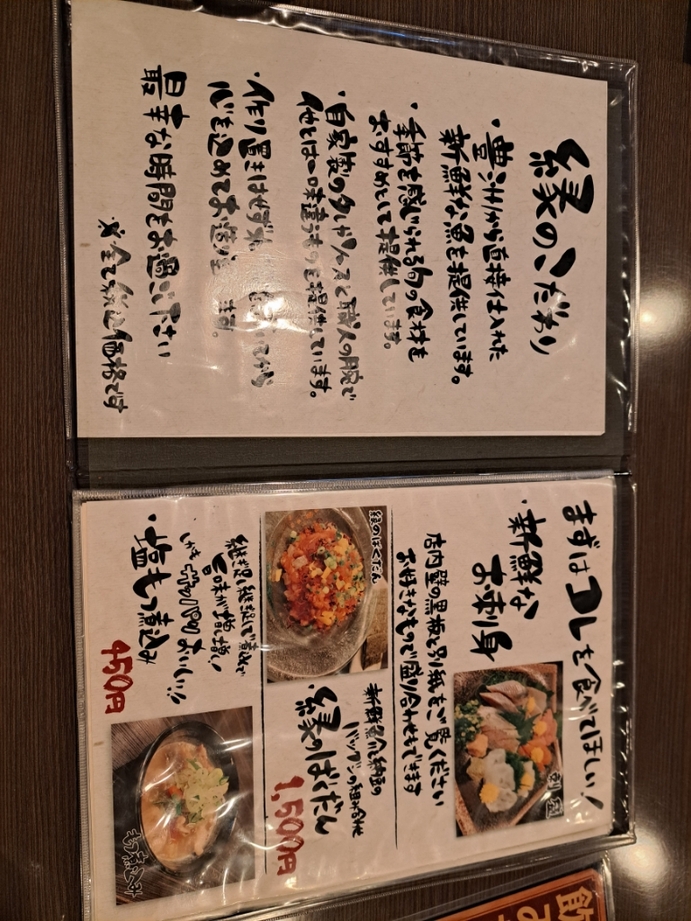 縁のこだわり
・豊洲から直接仕入れた
新鮮な魚を提供しています。
・季節を感じられる旬の食材を
おすすめとして提供しています。
・自家製のタレやソースと職人の腕で
他とは一味違うものを提供しています。
・作り置きはせず
心を込めてお造り
ます。
最幸な時間をお過ごし下さい
※全て税込価格です
まずはコレを食べてほしい!
・新鮮な
お刺身
店内壁の黒板と別紙をご覧ください
お好きなもので盛り合わせもできます
縁のばくだん
新鮮魚介と納豆の
バツグンの組み合わせ
縁のばくだん
1,500円
継ぎ足し継ぎ足しで煮込んで
旨味が増し増し!
おいしい!!
・塩もつ煮込み
450円
もつ煮込み
飲